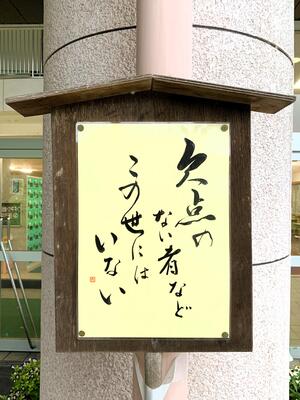 欠点の
ない者など
この世には
いない